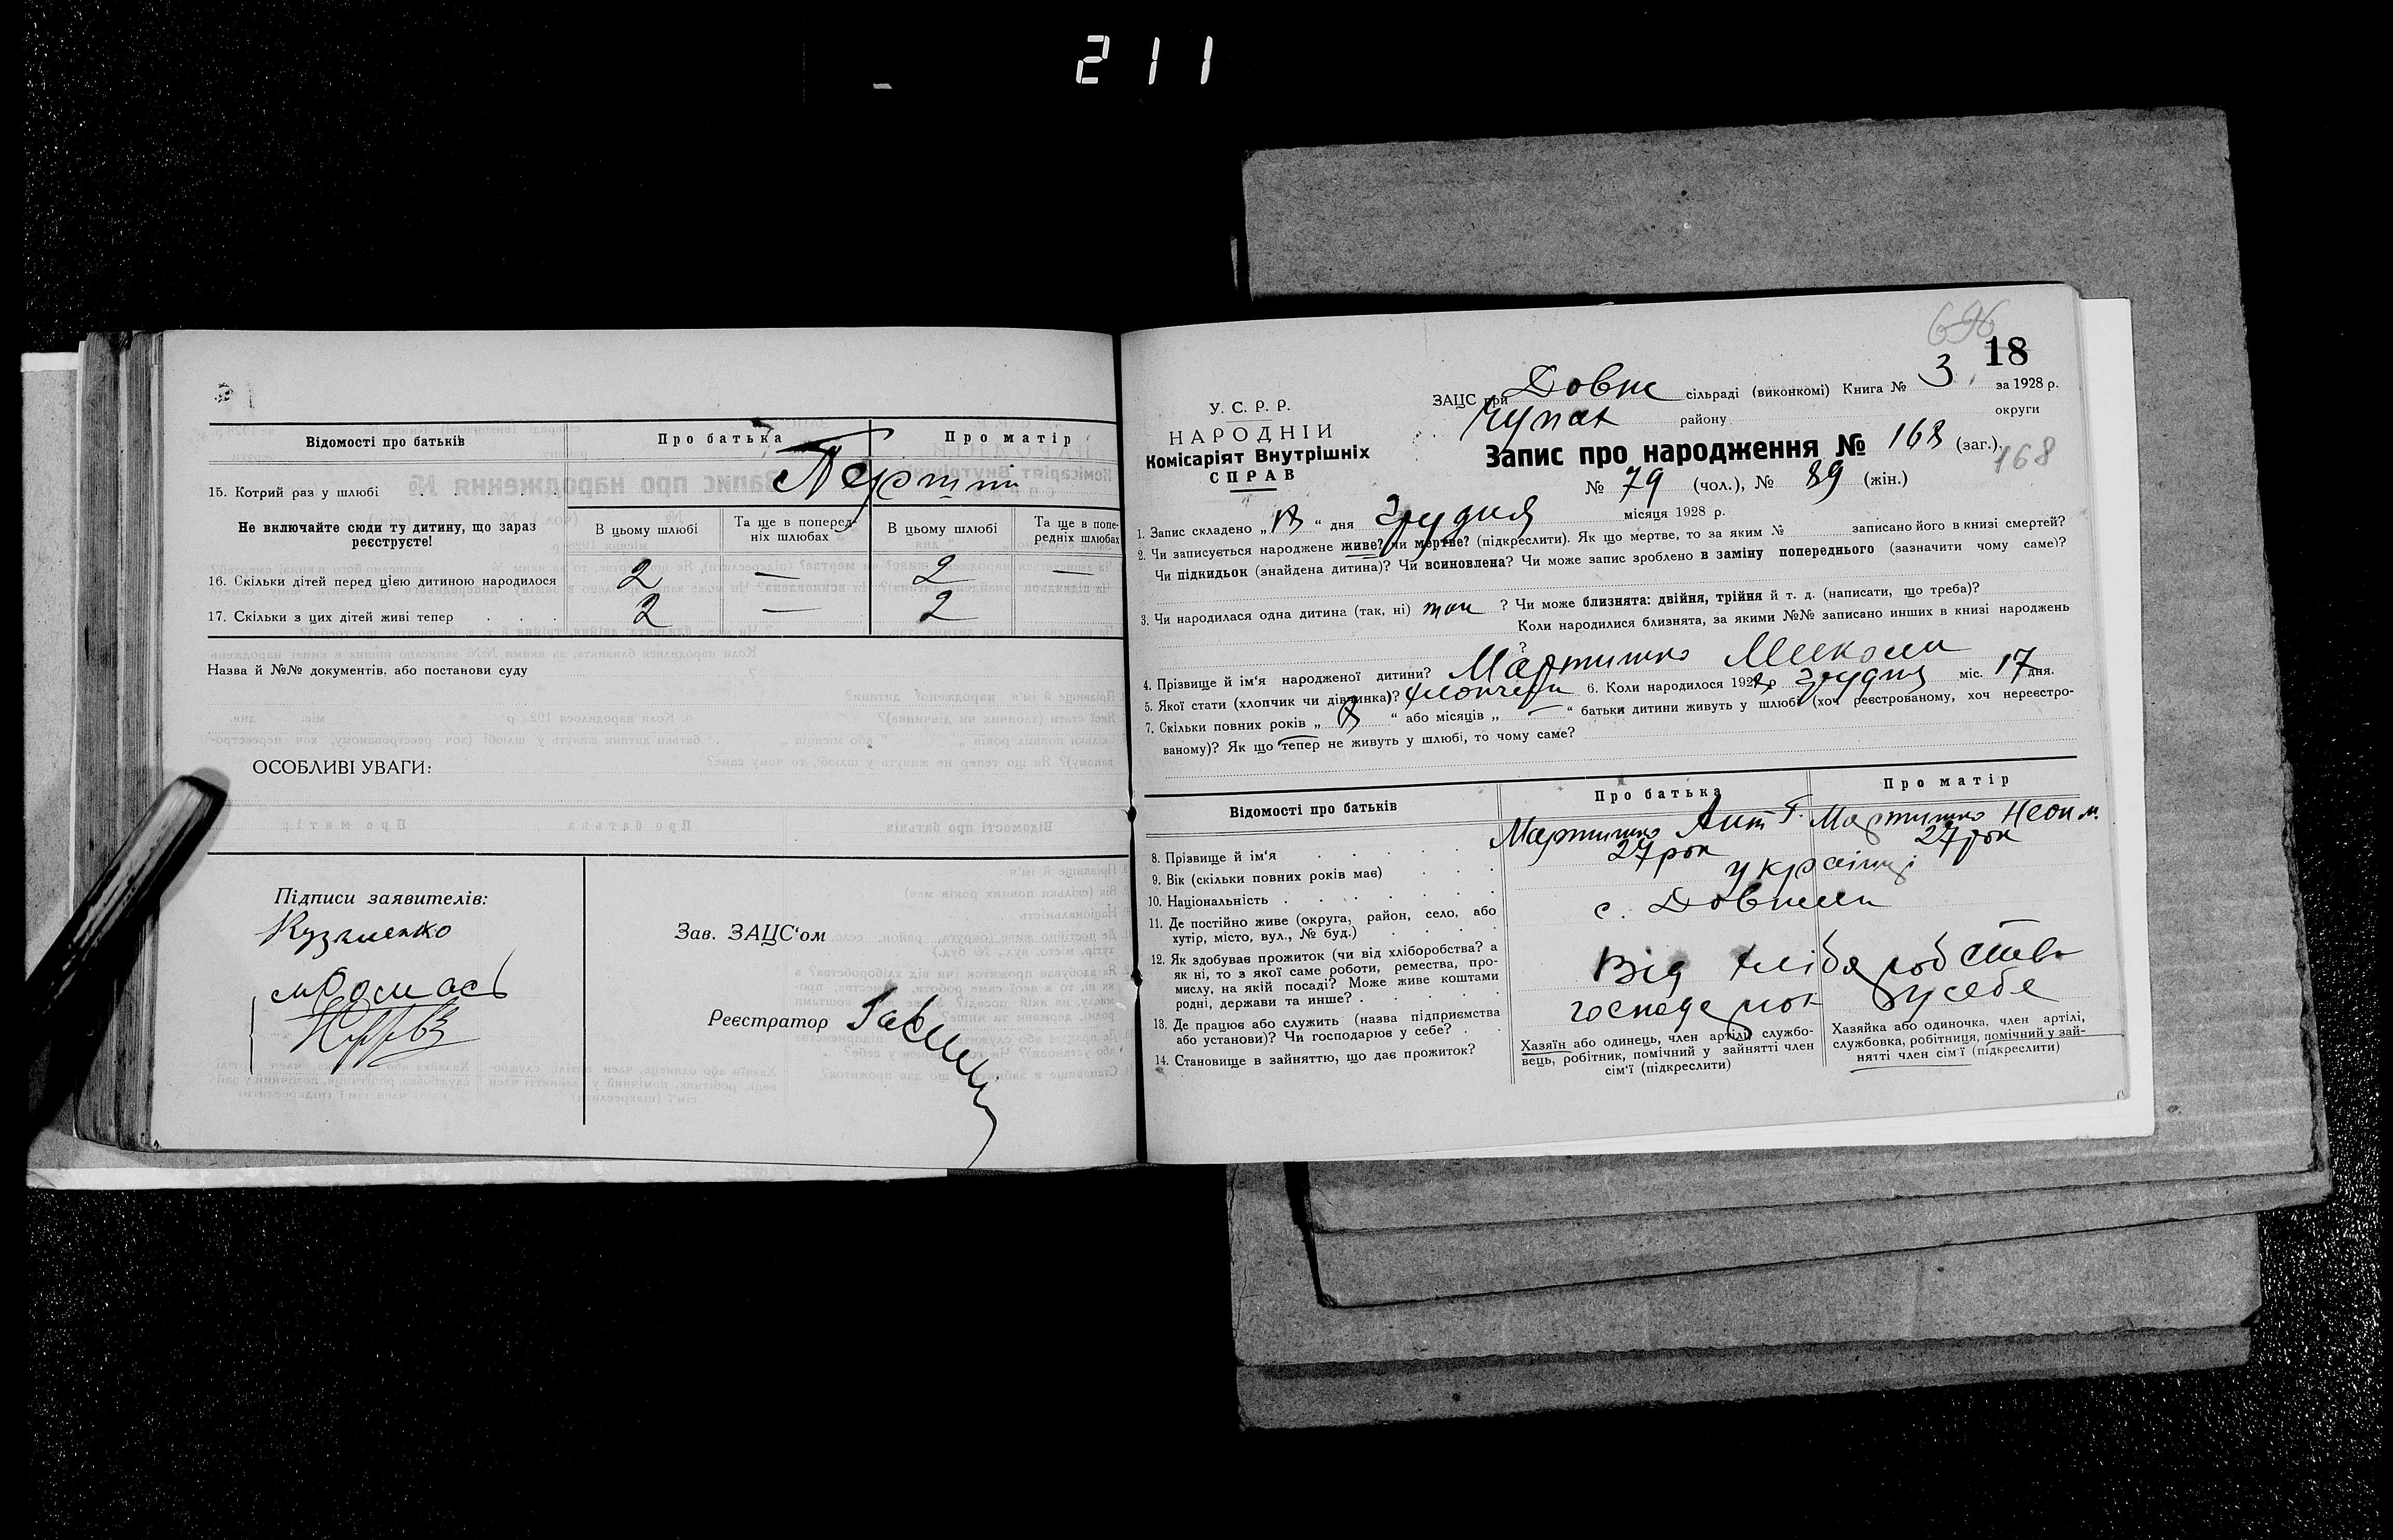 211
Відомості про батьків
Про батька
Про матір
15. Котрий раз у шлюбі
Перший
Не включайте сюди ту дитину, що зараз реєструєте!
В цьому шлюбі
Та ще в попередніх шлюбах
В цьому шлюбі
Та ще в попередніх шлюбах
16. Скільки дітей перед цією дитиною народилося 2 — 2 —
17. Скільки з цих дітей живі тепер 2 — 2
Назва й №№ документів, або постанови суду
ОСОБЛИВІ УВАГИ:
Підписи заявителів:
Кузменко
Зав. ЗАЦС'ом
Реєстратор
696
18
ЗАЦС при Довж сільраді (виконкомі) Книга № 3 за 1928 р.
Чупах району округи
У. С. Р. Р.
НАРОДНІЙ
Комісаріят Внутрішніх
СПРАВ
Запис про народження № 168 (заг.).
168
№ 79 (чол.), № 89 (жін.)
1. Запис складено „18“ дня Грудня місяця 1928 р.
2. Чи записується народжене живе? чи мертве? (підкреслити). Як що мертве, то за яким № записано його в книзі смертей?
Чи підкидьок (знайдена дитина)? Чи всиновлена? Чи може запис зроблено в заміну попереднього (зазначити чому саме)?
3. Чи народилася одна дитина (так, ні) так ? Чи може близнята: двійня, трійня й т. д. (написати, що треба)?
Коли народилися близнята, за якими №№ записано инших в книзі народжень
?
4. Прізвище й ім'я народженої дитини? Мартишко Микола
5. Якої стати (хлопчик чи дівчинка)? хлопчик 6. Коли народилося 1928 р Грудня міс. 17 дня.
7. Скільки повних років „ 8 “ або місяців „ — “ батьки дитини живуть у шлюбі (хоч реєстрованому, хоч нереєстро-
ваному)? Як що тепер не живуть у шлюбі, то чому саме?
Відомості про батьків
Про батька
Про матір
8. Прізвище й ім'я Мартишко Ант Г. Мартишко
9. Вік (скільки повних років має) 27 рок 27 рок
10. Національність українці
11. Де постійно живе (округа, район, село, або
хутір, місто, вул., № буд.) с. Довжик
12. Як здобуває прожиток (чи від хліборобства? а
як ні, то з якої саме роботи, ремества, про-
мислу, на якій посаді? Може живе коштами
родні, держави та инше?
Від хліборобства
13. Де працює або служить (назва підприємства
або установи)? Чи господарює у себе?
господарює у себе
14. Становище в зайняттю, що дає прожиток?
Хазяїн або одинець, член артілі, службо-
вець, робітник, помічний у зайнятті член
сім'ї (підкреслити)
Хазяйка або одиночка, член артілі,
службовка, робітниця, помічний у зай-
нятті член сім'ї (підкреслити)